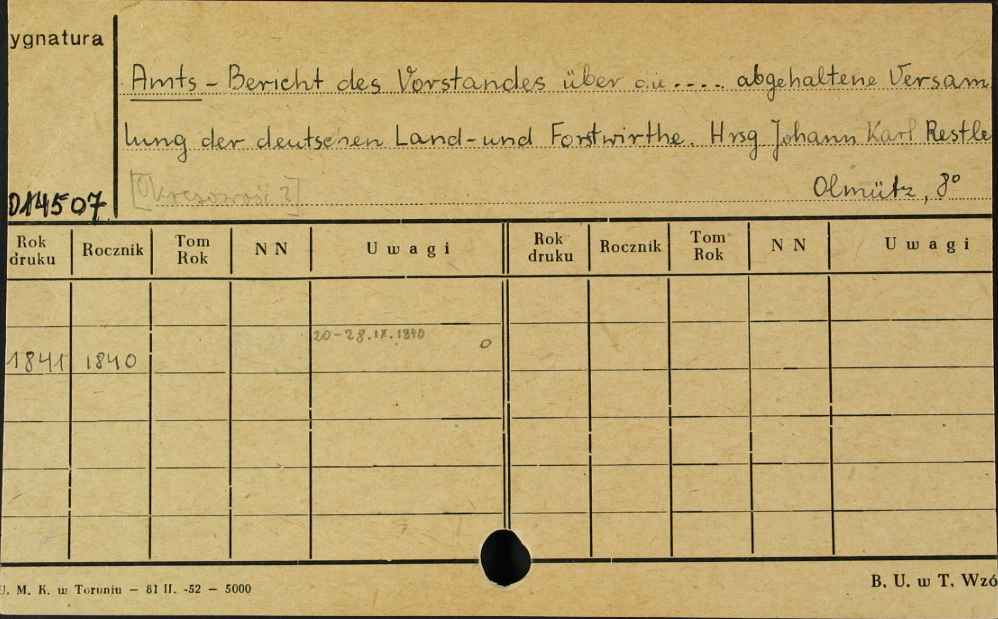 ygnatura
Amts - Bericht des Vorstandes über die .... abgehaltene Versam
lung der deutschen Land- und Forstwirthe. Hrsg Johann Karl Restle
[Okresowość ?] Olmütz, 8°
014507
Rok druku Rocznik Tom Rok N N Uwagi Rok druku Rocznik Tom Rok N N Uwagi
20-28.IX.1840
1841 1840 0
U. M. K. w Toruniu — 81 II. -52 — 5000 B. U. w T. Wzó